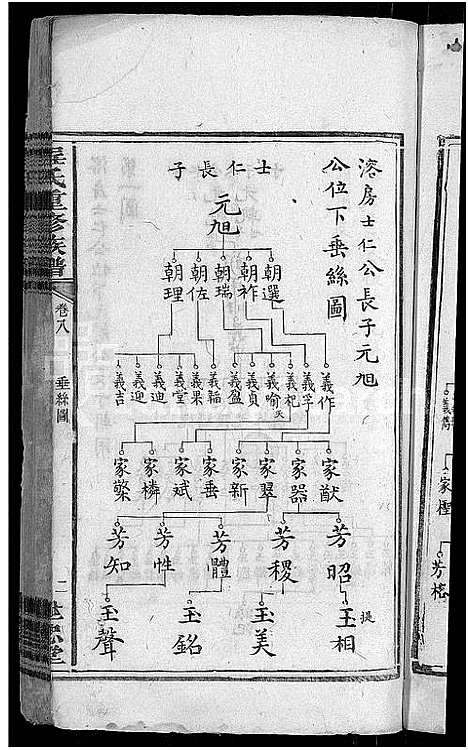 溶房士仁公長子元旭
公位下垂絲圖
士仁長子
元旭
朝選
朝祚
朝瑞
朝佐
朝理
義作
義孚
義祀
義喻
義貞
義盈
義韜
義果
義堂
義迪
義迎
義吉
家猷
家器
家翠
家新
家垂
家斌
家橉
家檠
芳昭
芳稷
芳體
芳性
芳知
提
玉相
玉美
玉銘
玉聲
氏重修族譜
卷八
垂絲圖
二
家樫
芳格